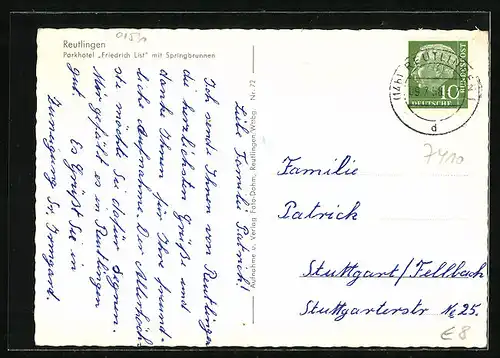 Reutlingen
Parkhotel „Friedrich List" mit Springbrunnen
Liebe Familie Patrick!
Ich sende Ihnen von Reutlingen
die herzlichsten Grüße und
danke Ihnen für Ihre freund-
liche Aufnahme. Der Allerhöch-
ste möchte Sie dafür segnen.
Mir gefällt es in Reutlingen
gut. Es Grüßt Sie in
Zuneigung Sr. Irmgard.
Aufnahme u. Verlag Foto-Dohm, Reutlingen-Wttbg. Nr. 72
(14b) REUTLINGEN
d
10
DEUTSCHE
BUNDESPOST
7410
Familie
Patrick
Stuttgart/Fellbach
Stuttgarterstr № 25.
€8